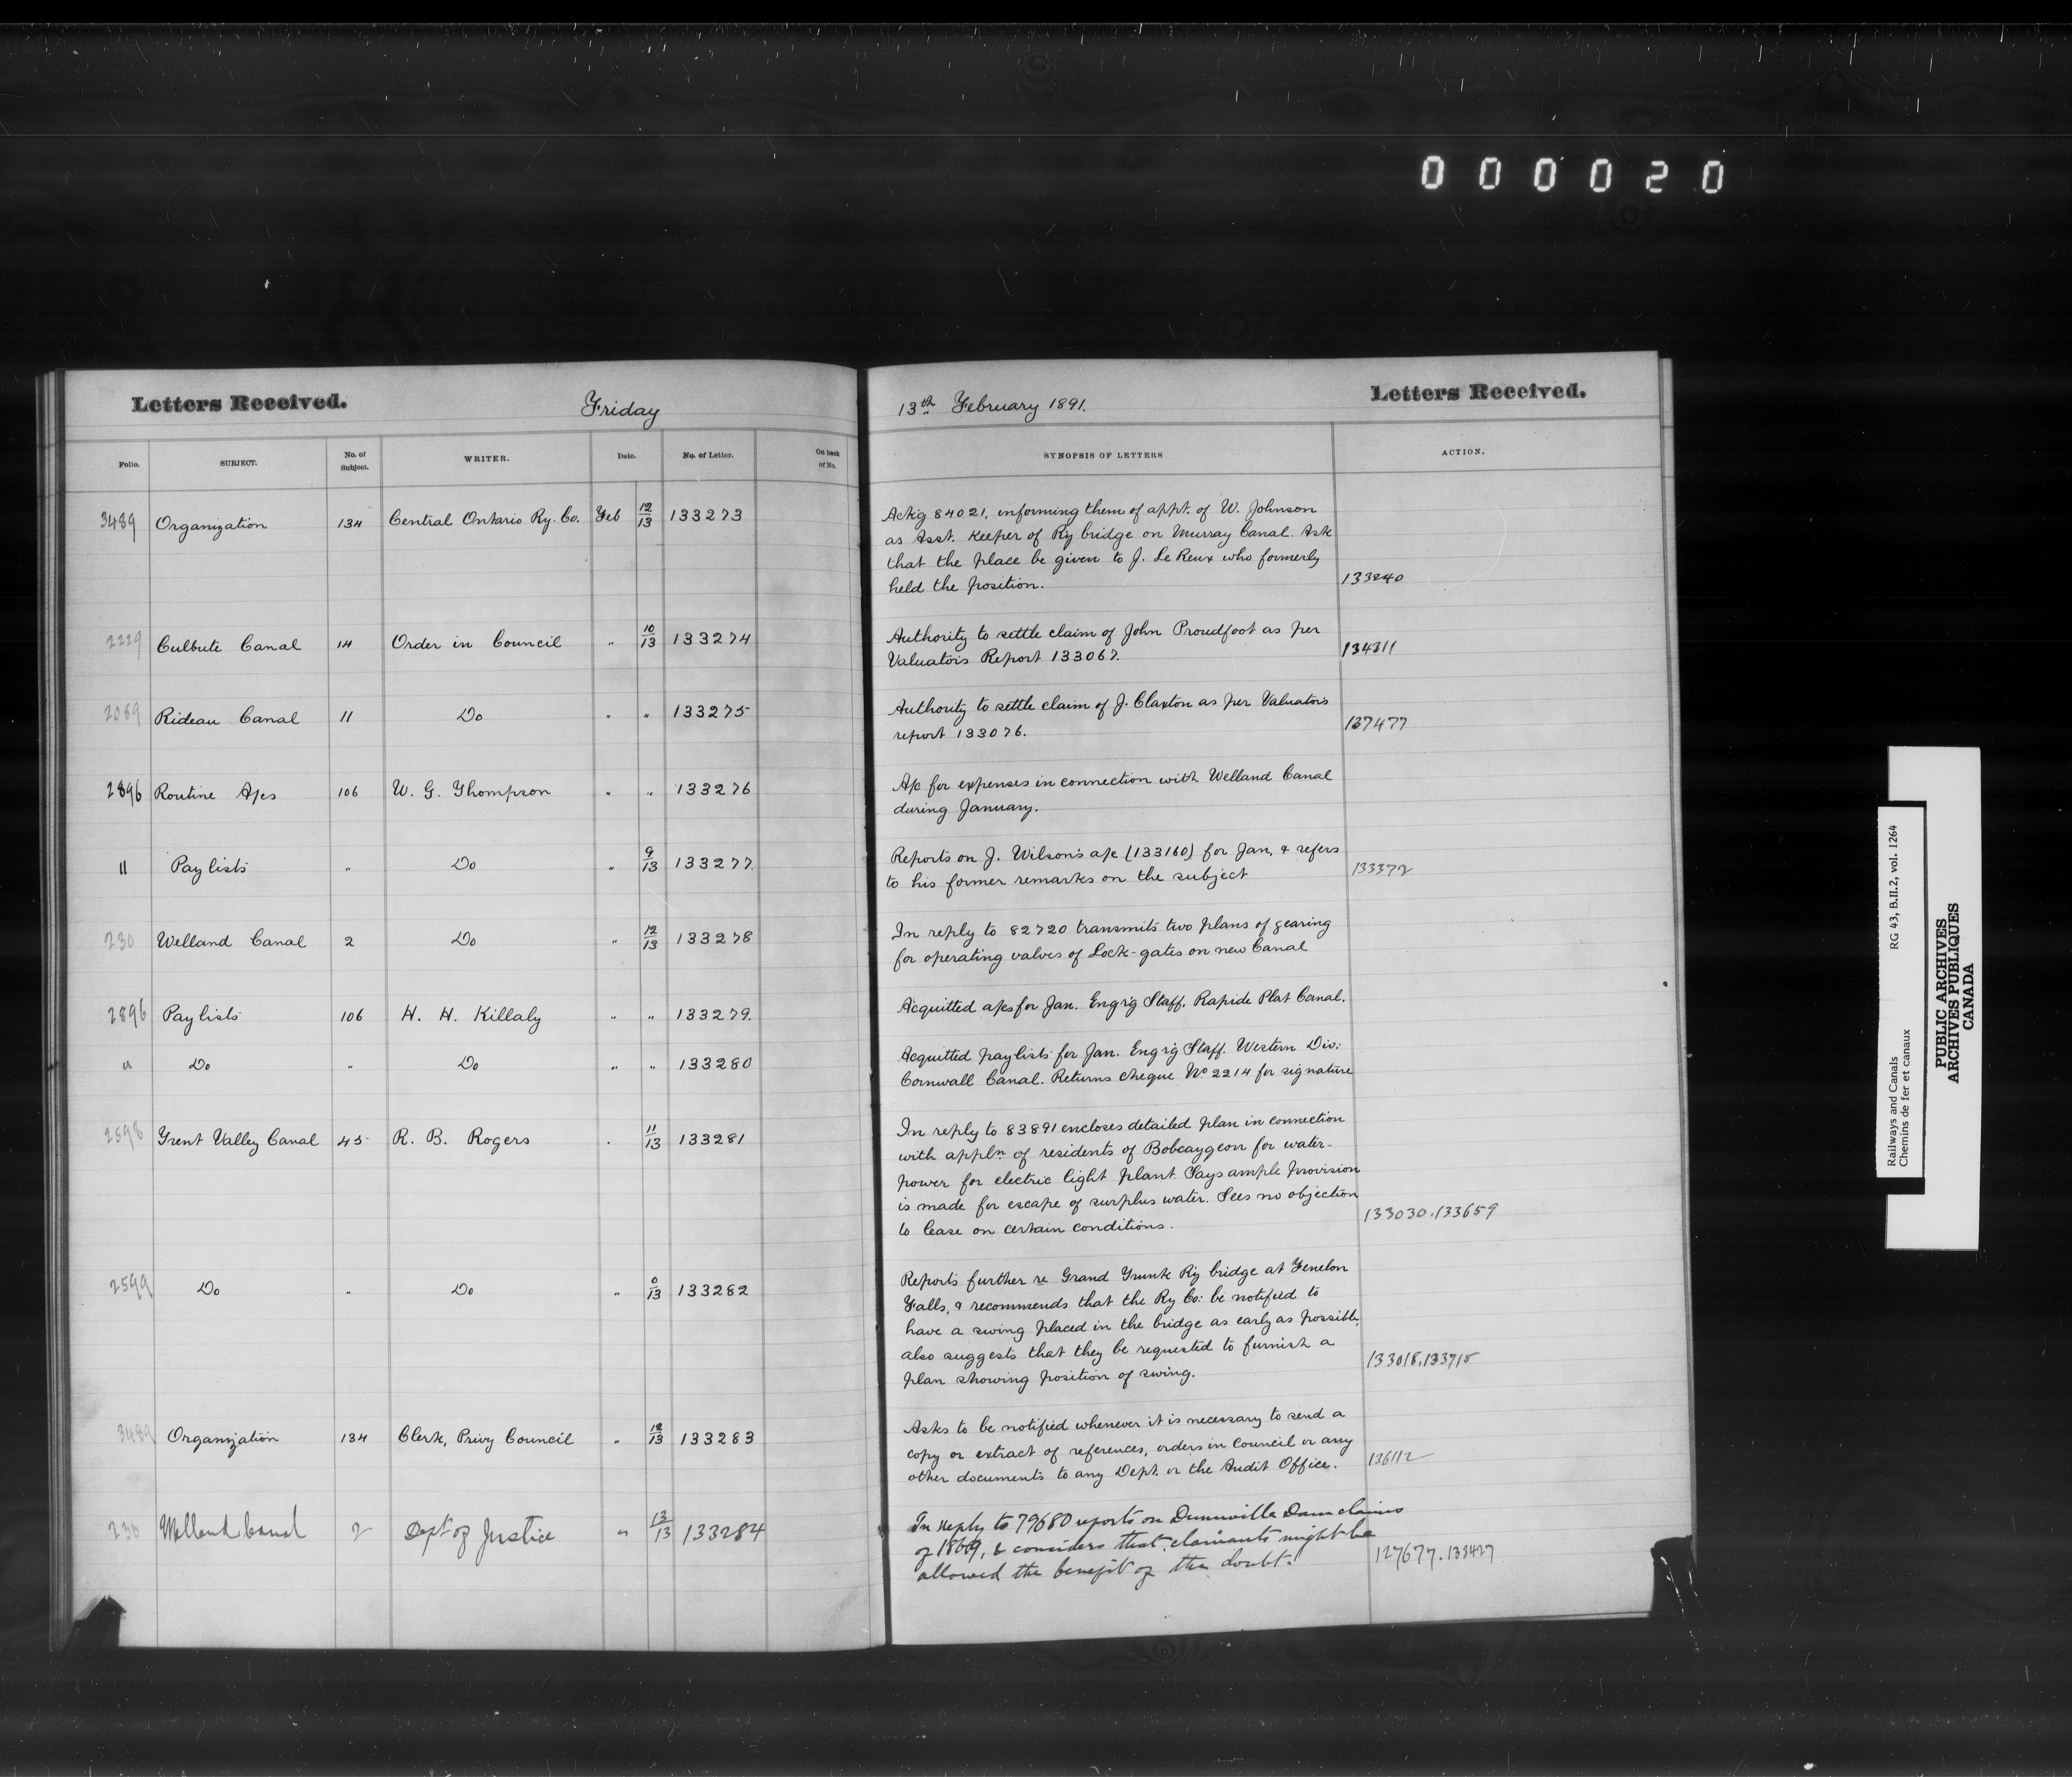 000020
Letters Received. Friday
13th February 1891. Letters Received.
Folio. SUBJECT. No. of Subject. WRITER. Date. No. of Letter. On back of No.
SYNOPSIS OF LETTERS ACTION.
3489 Organization 134 Central Ontario Ry. Co. Feb 12/13 133273
Ackg 84021, informing them of appt. of W. Johnson
as Asst. Keeper of Ry bridge on Murray Canal. Ask
that the place be given to J. Le Reux who formerly
held the position. 133240
2229 Culbute Canal 14 Order in Council " 10/13 133274
Authority to settle claim of John Proudfoot as per
Valuator's Report 133067. 134311
2089 Rideau Canal 11 Do " " 133275
Authority to settle claim of J. Claxton as per Valuator's
report 133076. 137477
2896 Routine A/cs 106 W. G. Thompson " " 133276
A/c for expenses in connection with Welland Canal
during January.
11 Paylists " Do " 9/13 133277
Reports on J. Wilson's a/c (133160) for Jan, & refers
to his former remarks on the subject 133372
230 Welland Canal 2 Do " 12/13 133278
In reply to 82720 transmits two plans of gearing
for operating valves of Lock-gates on new Canal
2896 Paylists 106 H. H. Killaly " " 133279.
Acquitted a/cs for Jan. Eng'r'g Staff. Rapide Plat Canal.
" Do " Do " " 133280
Acquitted paylists for Jan. Eng'r'g Staff. Western Div:
Cornwall Canal. Returns cheque No 2214 for signature
2598 Trent Valley Canal 45 R. B. Rogers " 11/13 133281
In reply to 83891 encloses detailed plan in connection
with appln. of residents of Bobcaygeon for water-
power for electric light plant. Says ample provision
is made for escape of surplus water. Sees no objection
to lease on certain conditions. 133030.133659
2599 Do " Do " 0/13 133282
Reports further re Grand Trunk Ry bridge at Fenelon
Falls, & recommends that the Ry Co: be notified to
have a swing placed in the bridge as early as possible,
also suggests that they be requested to furnish a
plan showing position of swing. 133018.133715
3489 Organization 134 Clerk, Privy Council " 12/13 133283
Asks to be notified whenever it is necessary to send a
copy or extract of references, orders in council or any
other documents to any Dept. or the Audit Office. 136112
230 Welland Canal 2 Dept of Justice " 13/13 133284
In reply to 79680 reports on Dunnville Dam claims
of 1869, & considers that claimants might be
allowed the benefit of the doubt. 127677.133427
Railways and Canals RG 43, B.II.2, vol. 1264
Chemins de fer et canaux
PUBLIC ARCHIVES
ARCHIVES PUBLIQUES
CANADA